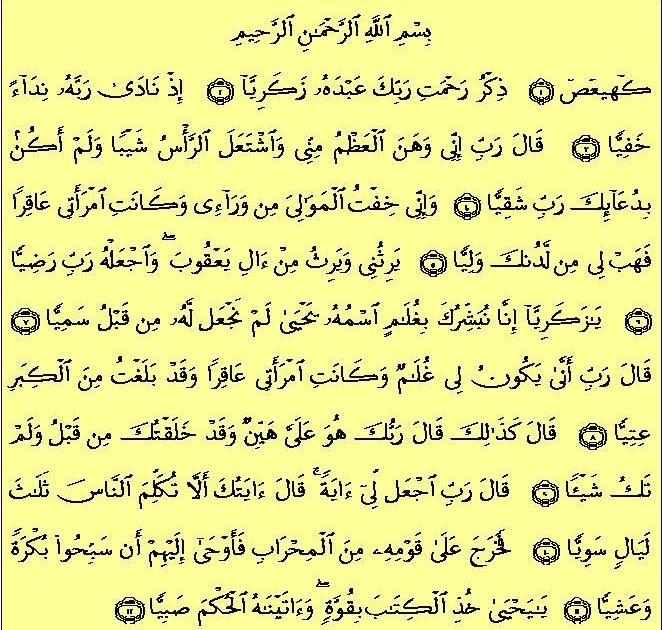 بِسْمِ ٱللَّهِ ٱلرَّحْمَٰنِ ٱلرَّحِيمِ
كٓهيعٓصٓ ١ ذِكْرُ رَحْمَتِ رَبِّكَ عَبْدَهُۥ زَكَرِيَّآ ٢ إِذْ نَادَىٰ رَبَّهُۥ نِدَآءً
خَفِيًّا ٣ قَالَ رَبِّ إِنِّى وَهَنَ ٱلْعَظْمُ مِنِّى وَٱشْتَعَلَ ٱلرَّأْسُ شَيْبًا وَلَمْ أَكُنۢ
بِدُعَآئِكَ رَبِّ شَقِيًّا ٤ وَإِنِّى خِفْتُ ٱلْمَوَٰلِىَ مِن وَرَآءِى وَكَانَتِ ٱمْرَأَتِى عَاقِرًا
فَهَبْ لِى مِن لَّدُنكَ وَلِيًّا ٥ يَرِثُنِى وَيَرِثُ مِنْ ءَالِ يَعْقُوبَ ۖ وَٱجْعَلْهُ رَبِّ رَضِيًّا
٦ يَٰزَكَرِيَّآ إِنَّا نُبَشِّرُكَ بِغُلَٰمٍ ٱسْمُهُۥ يَحْيَىٰ لَمْ نَجْعَل لَّهُۥ مِن قَبْلُ سَمِيًّا ٧
قَالَ رَبِّ أَنَّىٰ يَكُونُ لِى غُلَٰمٌ وَكَانَتِ ٱمْرَأَتِى عَاقِرًا وَقَدْ بَلَغْتُ مِنَ ٱلْكِبَرِ
عِتِيًّا ٨ قَالَ كَذَٰلِكَ قَالَ رَبُّكَ هُوَ عَلَىَّ هَيِّنٌ وَقَدْ خَلَقْتُكَ مِن قَبْلُ وَلَمْ
تَكُ شَيْـًٔا ٩ قَالَ رَبِّ ٱجْعَل لِّىٓ ءَايَةً ۚ قَالَ ءَايَتُكَ أَلَّا تُكَلِّمَ ٱلنَّاسَ ثَلَٰثَ
لَيَالٍ سَوِيًّا ١٠ فَخَرَجَ عَلَىٰ قَوْمِهِۦ مِنَ ٱلْمِحْرَابِ فَأَوْحَىٰٓ إِلَيْهِمْ أَن سَبِّحُوا۟ بُكْرَةً
وَعَشِيًّا ١١ يَٰيَحْيَىٰ خُذِ ٱلْكِتَٰبَ بِقُوَّةٍ ۖ وَءَاتَيْنَٰهُ ٱلْحُكْمَ صَبِيًّا ١٢